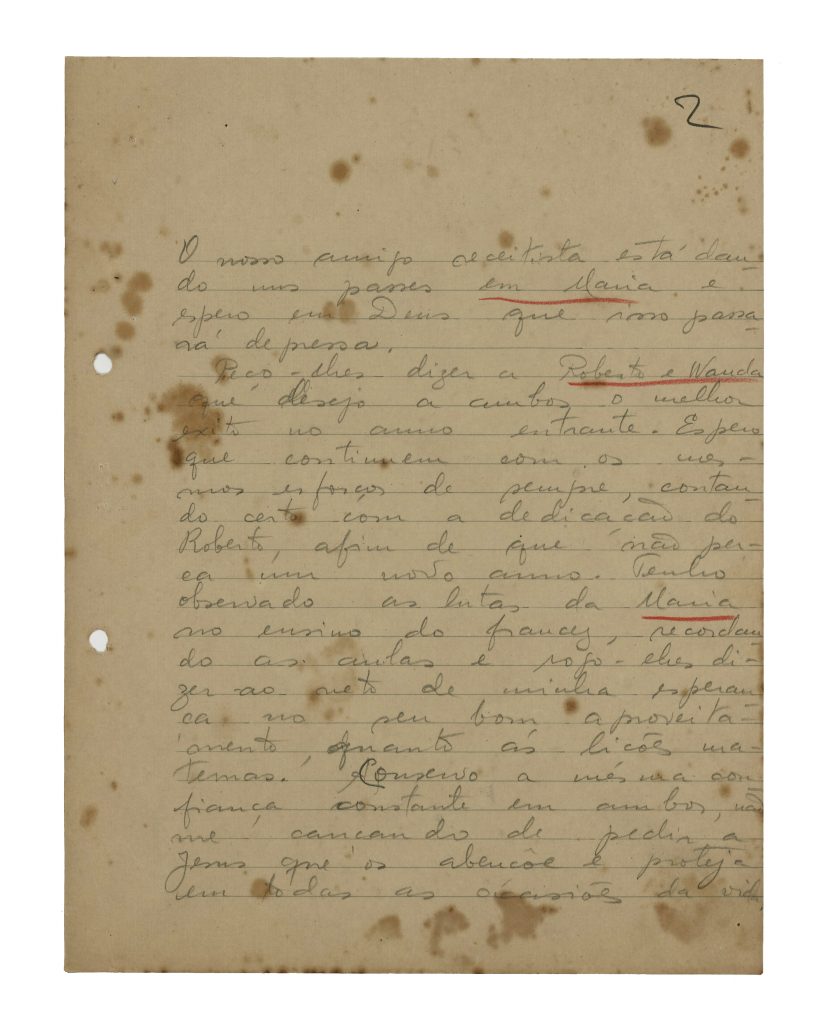 2
O nosso amigo receitista está dan-
do uns passes em Maria e
espero em Deus que isso passa-
rá depressa.
Peço-lhes dizer a Roberto e Wanda
que desejo a ambos o melhor
exito no anno entrante. Espero
que continuem com os mes-
mos esforços de sempre, contan-
do certo com a dedicação do
Roberto, afim de que não per-
ca um novo anno. Tenho
observado as lutas da Maria
no ensino do francez, recordan-
do as aulas e rogo-lhes di-
zer ao neto de minha esperan-
ça no seu bom aproveita-
mento, quanto ás lições ma-
ternas. Conservo a mésma con-
fiança constante em ambos, não
me cançando de pedir a
Jesus que os abençôe e proteja
em todas as ocasiões da vida